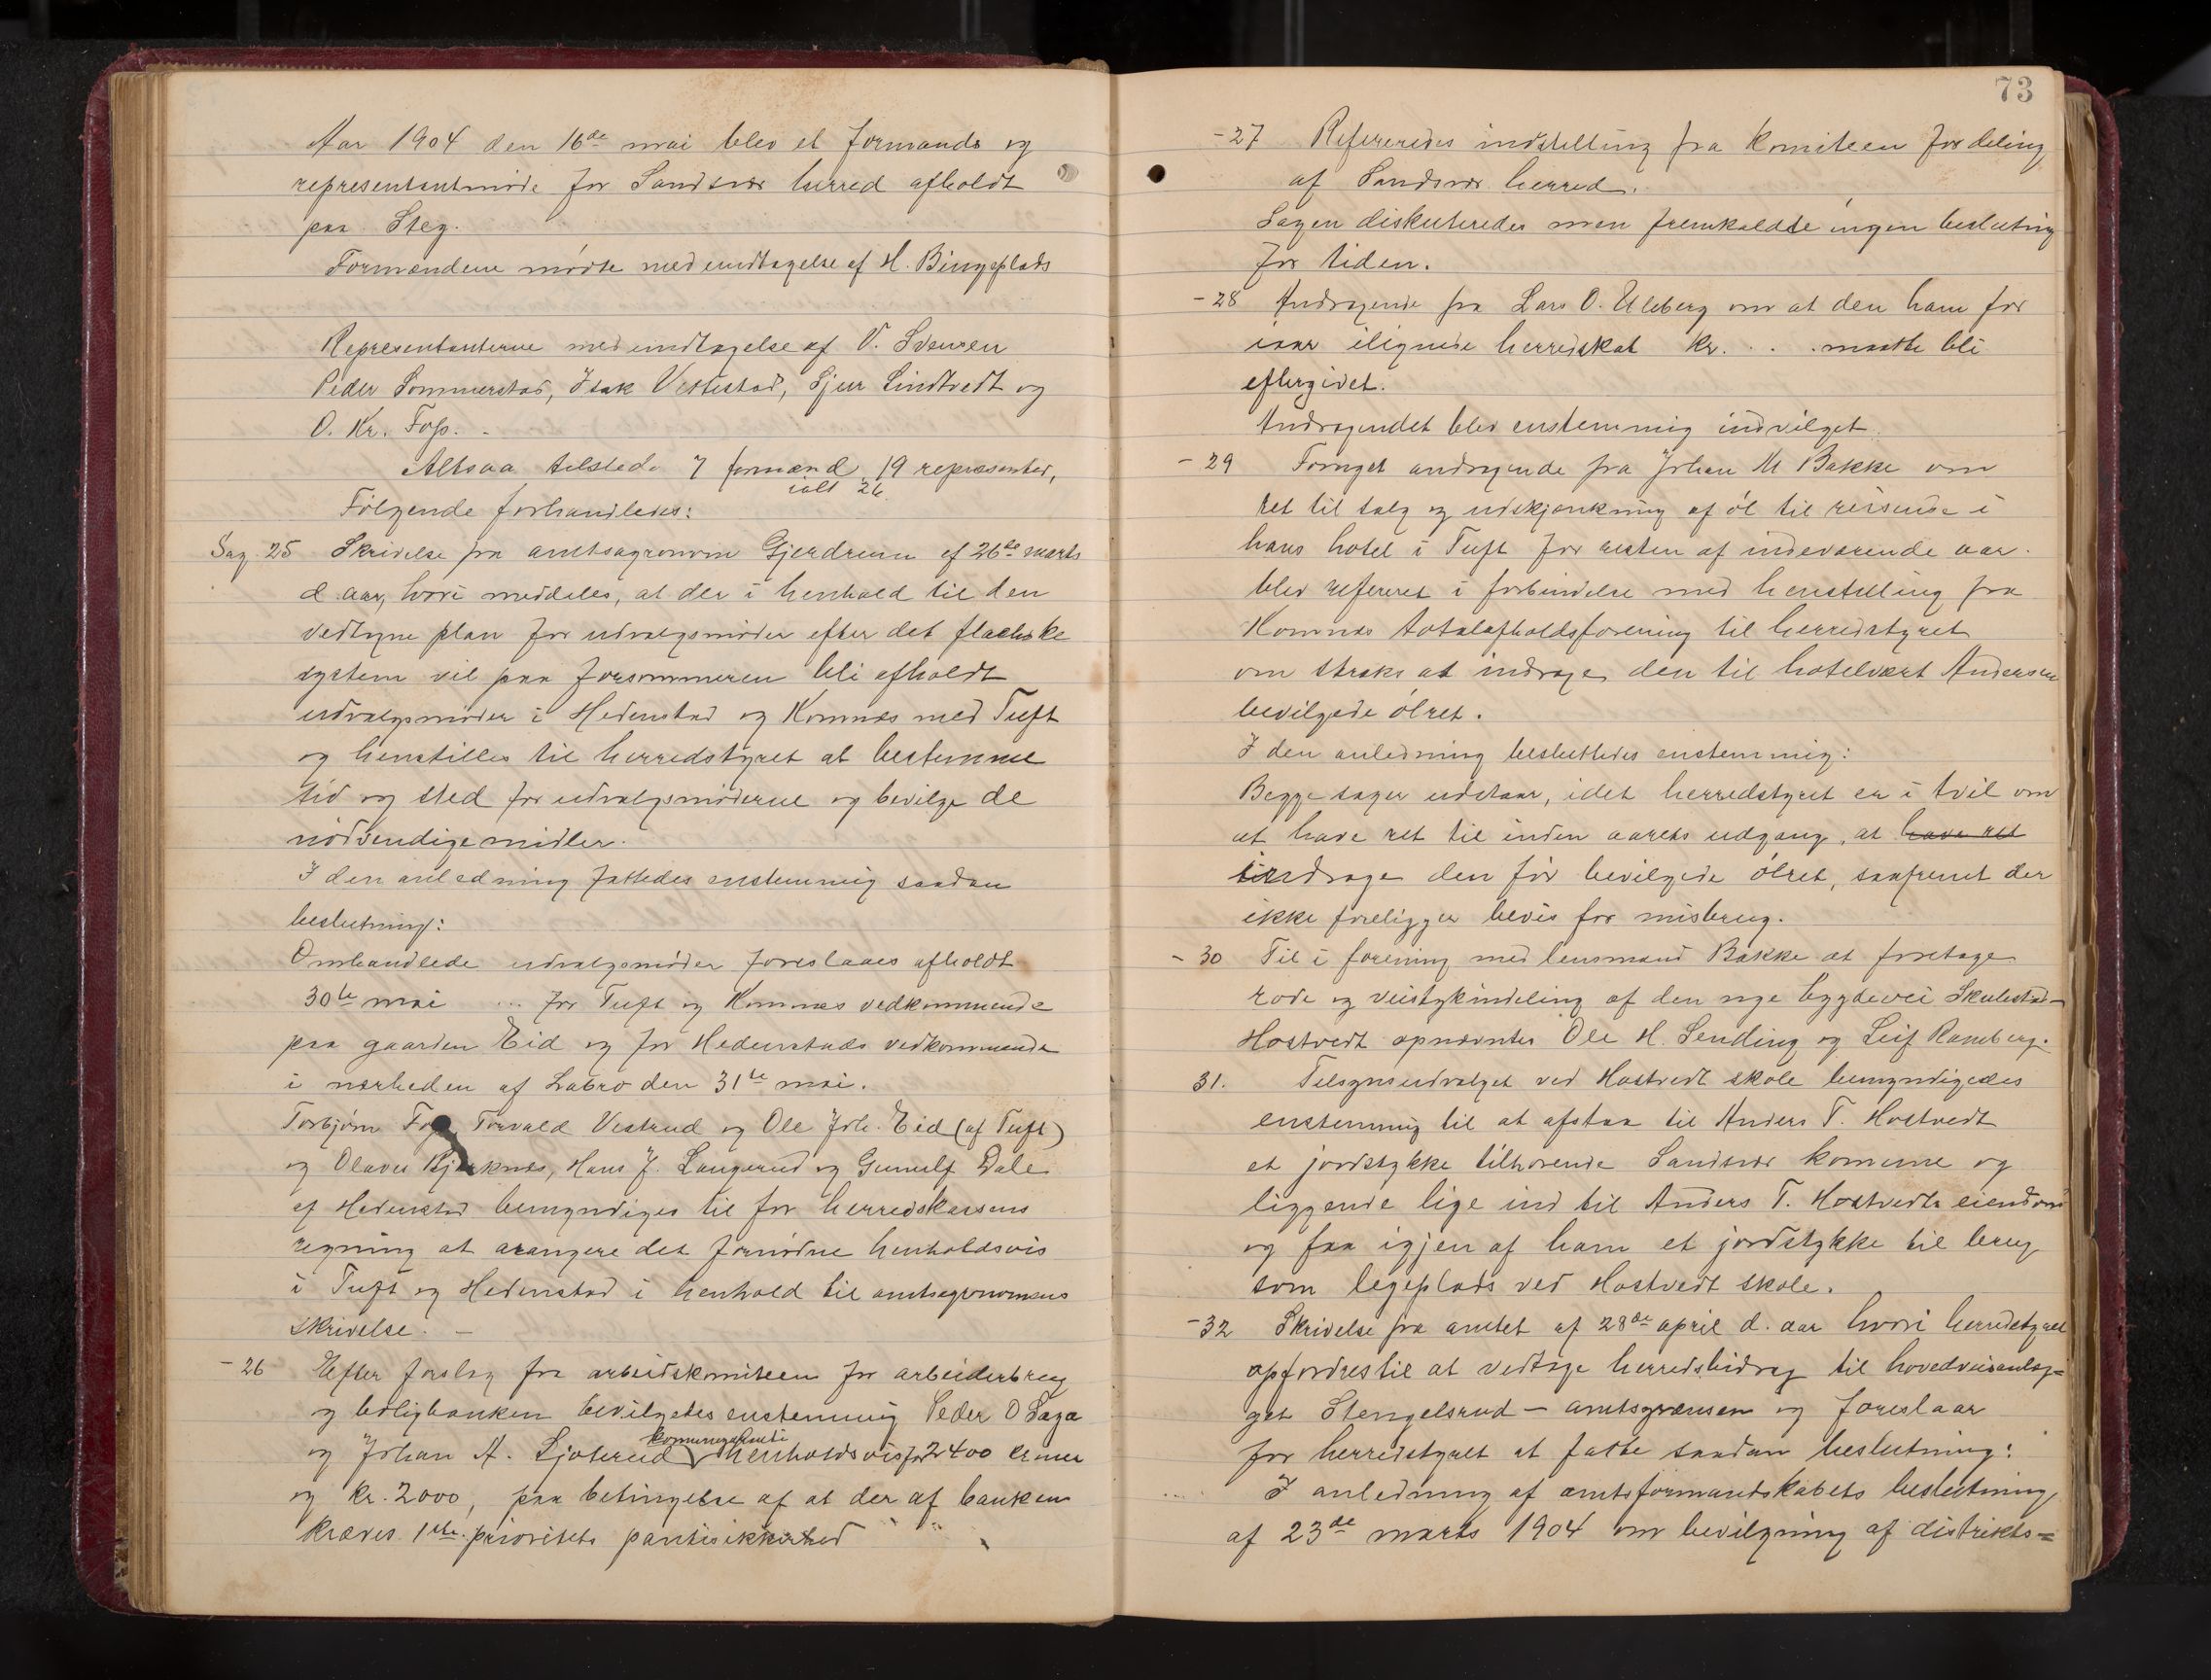 Aar 1904 den 16de mai blev et formands og
representantmøde for Sandsvær herred afholdt
paa Steg.
Formændene mødte med undtagelse af H. Bingeplads
Representanterne med undtagelse af V. Svensen
Peder Sommerstad, Isak Vettestad, Sjur Lindtvedt og
O. Kr. Foss.
Altsaa tilstede 7 formænd 19 repræsenter,
ialt 26
Følgende forhandledes:
Sag 25 Skrivelse fra amtsagronom Gjerdrum af 26de marts
d. aar, hvori meddeles, at der i henhold til den
vedtagne plan for udvalgsmøder efter det flachske
system vil paa forsommeren bli afholdt
udvalgsmøder i Hedenstad og Komnes med Tuft
og henstilles til herredstyret at bestemme
tid og sted for udvalgsmøderne og bevilge de
nødvendige midler.
I den anledning fattedes enstemmig saadan
beslutning:
Omhandlede udvalgsmøder foreslaaes afholdt
30te mai ... for Tuft og Komnes vedkommende
paa gaarden Eid og for Hedenstads vedkommende
i nærheden af Labro den 31te mai.
Torbjørn Foss Torvald Vestrud og Ole Joh. Eid (af Tuft)
og Olaves Bjerknes, Hans J. Langerud og Gunulf Dale
af Hedenstad bemyndiges til for herredskassens
regning at arangere det fornødne henholdsvis
i Tuft og Hedenstad i henhold til amtsagronomens
skrivelse. –
- 26 Efter forslag fra arbeidskomiteen for arbeiderbrug
og boligbanken bevilgedes enstemmig Peder O Saga
komunegaranti
og Johan A. Sjøterud henholdsvis for 2400 kroner
og kr. 2000, paa betingelse af at der af banken
kræves 1ste prioritets pantesikkerhed
73
- 27 Refereredes indstilling fra komiteen for deling
af Sandsvær herred.
Sagen diskuteredes men fremkaldte ingen beslutning
for tiden.
- 28 Andragende fra Lars O. Ulleberg om at den ham for
iaar ilignede herredskat kr. . . . maatte bli
eftergivet.
Andragendet blev enstemmig indvilget
- 29 Fornyet andragende fra Johan M Bakke om
ret til salg og udskjænkning af øl til reisende i
hans hotel i Tuft for resten af indeværende aar.
blev refereret i forbindelse med henstilling fra
Komnes totalafholdsforening til herredstyret
om straks at indrage den til hotelvært Andersen
bevilgede ølret.
I den anledning besluttedes enstemmig:
Begge sager udstaar, idet herredstyret er i tvil om
at have ret til inden aarets udgang, at have ret
inddrage den før bevilgede ølret, saafremt der
ikke foreligger bevis for misbrug.
- 30 Til i forening med lensmand Bakke at foretage
rode og veistykindeling af den nye bygdevei Skulestad-
Hostvedt opnævntes Ole H. Sending og Leif Ramberg.
31. Tilsynsudvalget ved Hostvedt skole bemyndigedes
enstemmig til at afstaa til Anders T. Hostvedt
et jordstykke tilhørende Sandsvær komune og
liggende lige ind til Anders T. Hostvedts eiendom
og faa igjen af ham et jordstykke til brug
som legeplads ved Hostvedt skole.
- 32 Skrivelse fra amtet af 28de april d. aar hvori herredstyret
opfordres til at vedtage herredsbidrag til hovedveisanlæg=
get Stengelsrud – amtsgrænsen og foreslaar
for herredstyret at fatte saadan beslutning:
I anledning af amtsformandskabets beslutning
af 23de marts 1904 om bevilgning af distrikts=